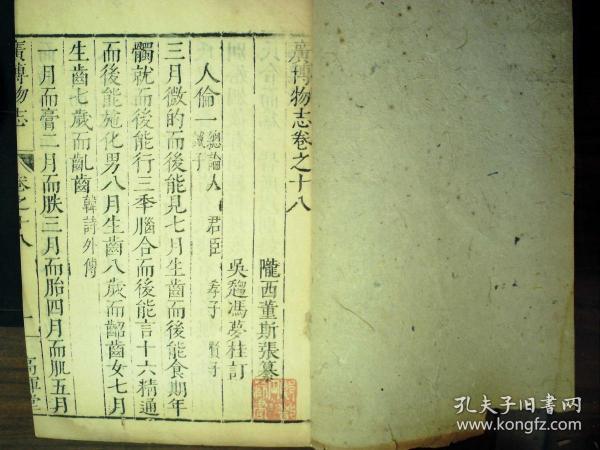 廣博物志卷之十八
隴西董斯張纂
吳趨馮夢桂訂
人倫一
總論人 君臣 孝子 賢子
三月微的而後能見七月生齒而後能食期年
髑就而後能行三季腦合而後能言十六精通
而後能施化男八月生齒八歲而齠齒女七月
生齒七歲而齔齒
韓詩外傳
一月而膏二月而胅三月而胎四月而肌五月
廣博物志
卷之十八
一
高暉堂
孔夫子旧书网
www.kongfz.com